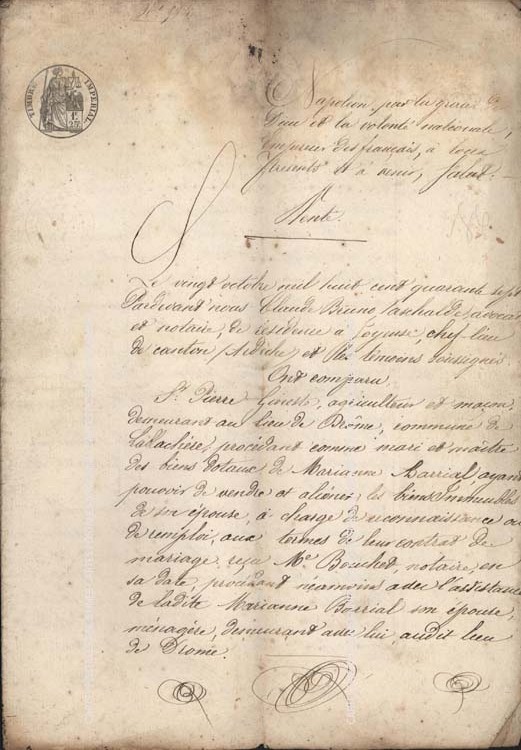 TIMBRE IMPERIAL
1F
25c
Napoléon, par la grâce de
Dieu et la volonté nationale,
empereur des français, à tous
présents et à venir, Salut.
Vente.
Le vingt octobre mil huit cent quarante sept
Pardevant nous Claude Bruno avocat
et notaire, de résidence à Joyeuse, chef lieu
de canton, Ardèche, et les témoins soussignés
Ont comparu
Sr. Pierre Gineste, agriculteur et maçon,
demeurant au lieu de Drôme, commune de
Lablachère, procédant comme mari et maître
des biens dotaux de Marianne Barrial ayant
pouvoir de vendre et aliéner les biens immeubles
de son épouse, à charge de reconnaissance ou
de remploi, aux termes de leur contrat de
mariage reçu Me. Bouchet, notaire, en
sa date, procédant néanmoins avec l'assistance
de ladite Marianne Barrial son épouse,
ménagère, demeurant avec lui, audit lieu
de Drome.